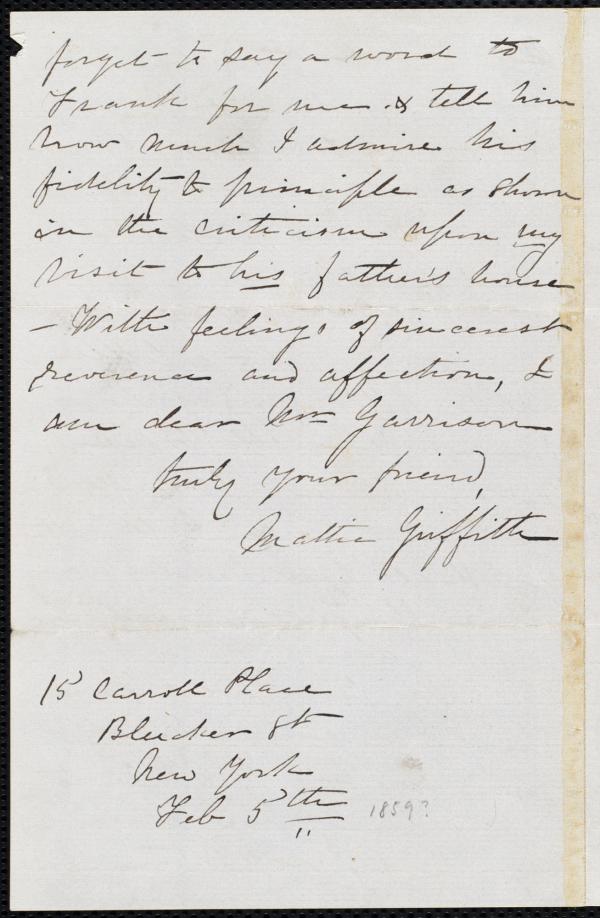 forget to say a word to
Frank for me & tell him
how much I admire his
fidelity to principle as shown
in the criticism upon my
visit to his father's house
— With feelings of sincerest
reverence and affection, I
am dear Mr Garrison
truly your friend,
Mattie Griffith
15 Carroll Place
Bleecker St
New York
Feb 5th 1859?